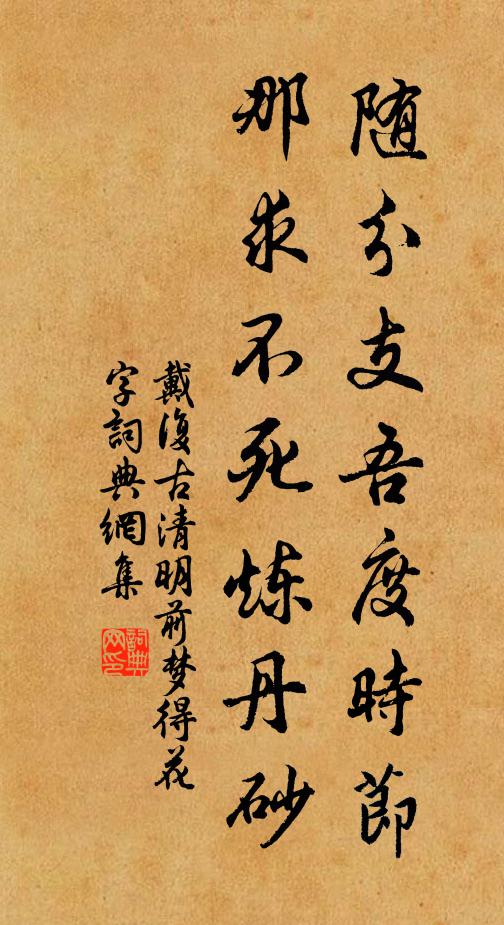 随分支吾度時節
那求不死炼丹砂
戴復古清明前梦得花
字詞典網集
詞典网印